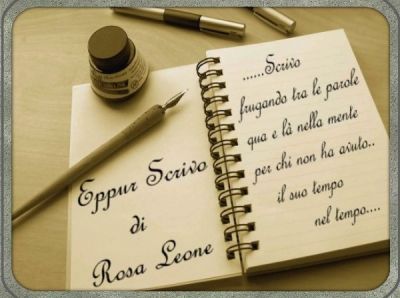 Eppur Scrivo
di
Rosa Leone
......Scrivo
frugando tra le parole
qua e là nella mente
per chi non ha avuto..
il suo tempo
nel tempo....